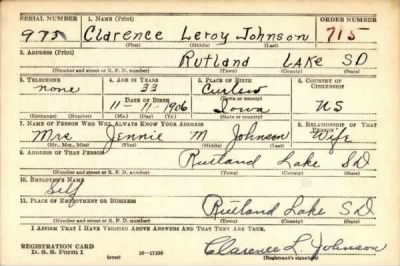 SERIAL NUMBER 1. NAME (Print) ORDER NUMBER
975 Clarence Leroy Johnson 715
(First) (Middle) (Last)
2. ADDRESS (Print)
Rutland LAKE SD
(Number and street or R. F. D. number) (Town) (County) (State)
3. TELEPHONE 4. AGE IN YEARS 5. PLACE OF BIRTH 6. COUNTRY OF CITIZENSHIP
none 33 Curlew
DATE OF BIRTH (Town or county)
11-11-1906 Iowa US
(Exchange) (Number) (Mo.) (Day) (Yr.) (State or country)
7. NAME OF PERSON WHO WILL ALWAYS KNOW YOUR ADDRESS 8. RELATIONSHIP OF THAT PERSON
Mrs Jennie M Johnson Wife
(Mr., Mrs., Miss) (First) (Middle) (Last)
9. ADDRESS OF THAT PERSON
Rutland Lake SD
(Number and street or R. F. D. number) (Town) (County) (State)
10. EMPLOYER'S NAME
Self
11. PLACE OF EMPLOYMENT OR BUSINESS
Rutland Lake S.D.
(Number and street or R. F. D. number) (Town) (County) (State)
I AFFIRM THAT I HAVE VERIFIED ABOVE ANSWERS AND THAT THEY ARE TRUE.
REGISTRATION CARD
D. S. S. FORM 1 (over) Clarence L. Johnson
(Registrant's signature)